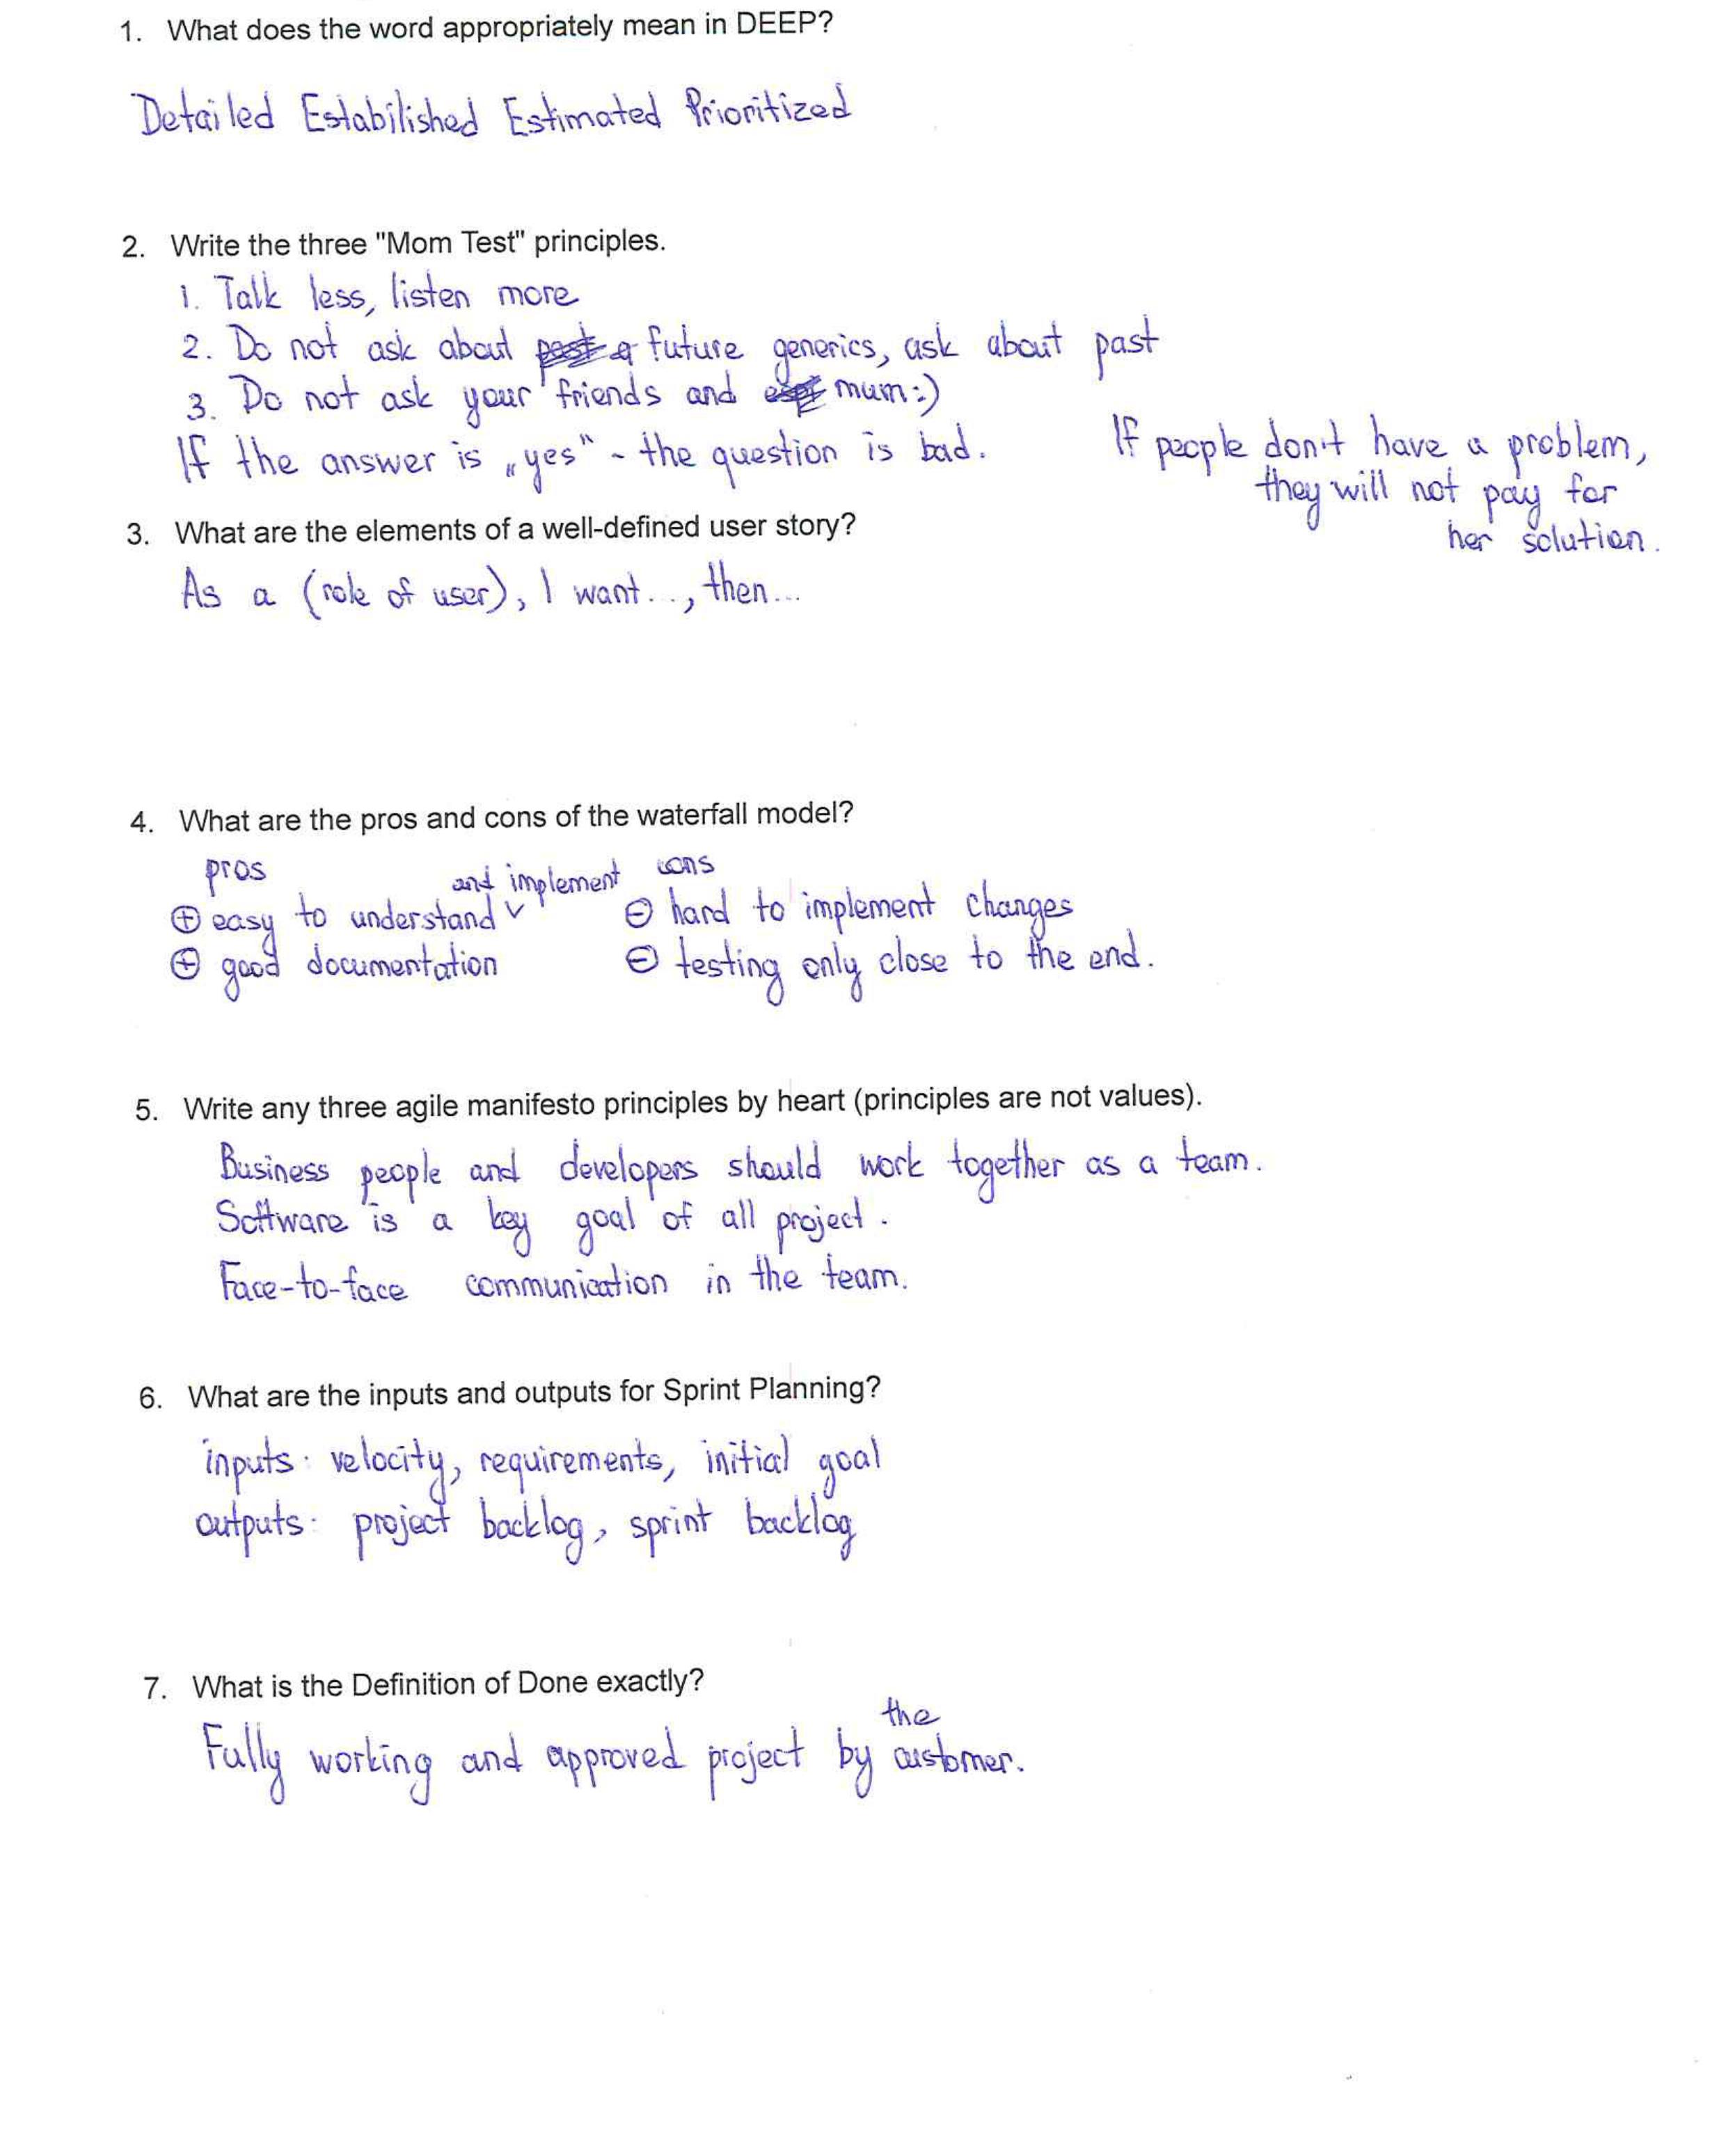 1. What does the word appropriately mean in DEEP?
Detailed Estabilished Estimated Prioritized
2. Write the three "Mom Test" principles.
1. Talk less, listen more
2. Do not ask about future generics, ask about past
3. Do not ask your friends and mum:)
If the answer is „yes" - the question is bad.
If people don't have a problem,
they will not pay for
her solution.
3. What are the elements of a well-defined user story?
As a (role of user), I want..., then...
4. What are the pros and cons of the waterfall model?
pros cons
and implement
⊕ easy to understand ⊖ hard to implement changes
⊕ good documentation ⊖ testing only close to the end.
5. Write any three agile manifesto principles by heart (principles are not values).
Business people and developers should work together as a team.
Software is a key goal of all project.
Face-to-face communication in the team.
6. What are the inputs and outputs for Sprint Planning?
inputs: velocity, requirements, initial goal
outputs: project backlog, sprint backlog
7. What is the Definition of Done exactly?
the
Fully working and approved project by customer.